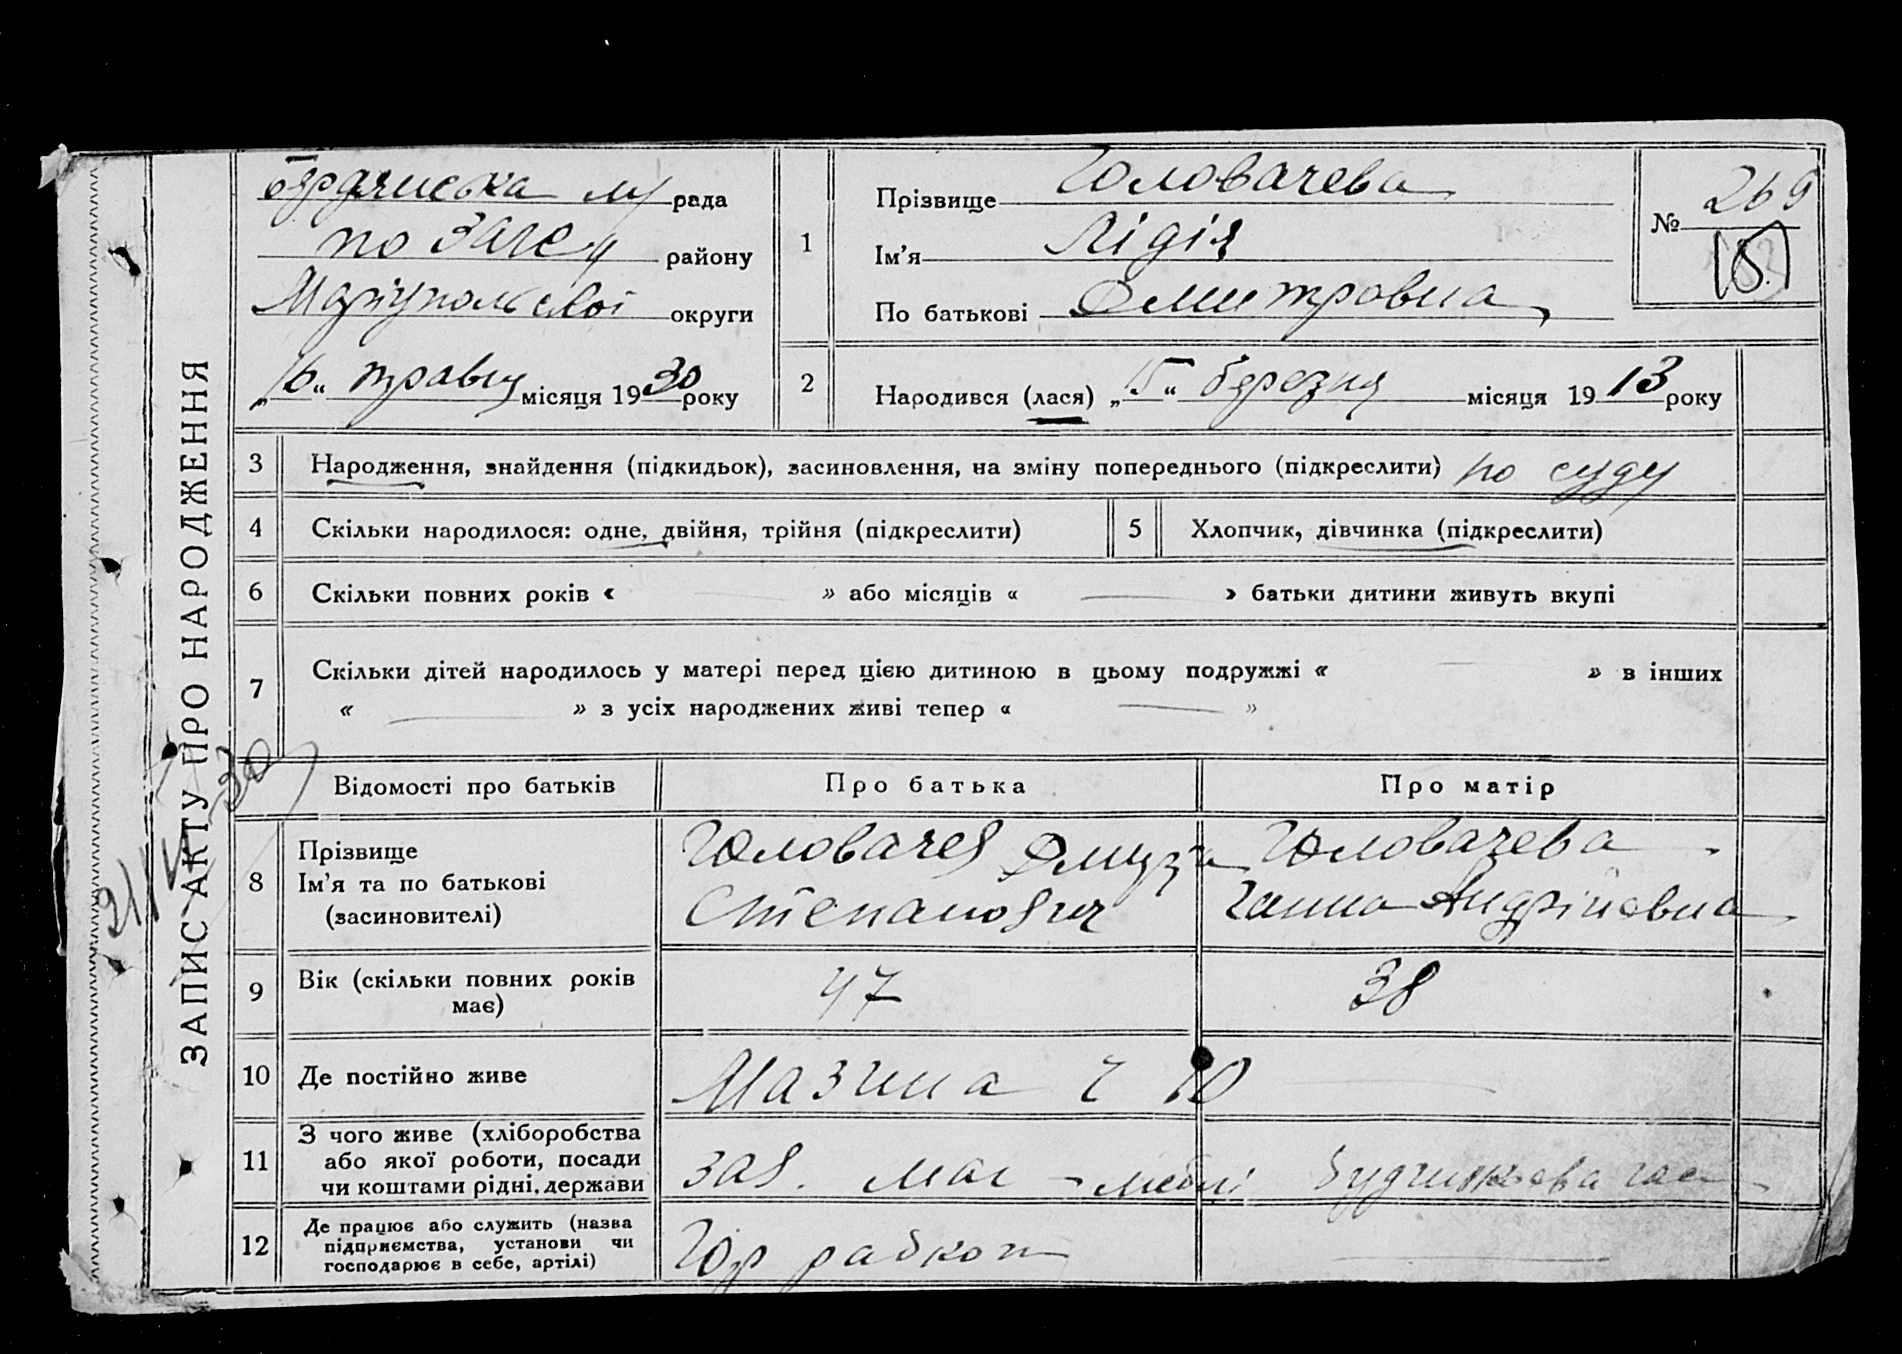 ЗАПИС АКТУ ПРО НАРОДЖЕННЯ
Бердянська м/рада
по Загсу району
Маріупольської округи
„16“ травня місяця 1930 року
1
Прізвище Головачева
Ім'я Лідія
По батькові Дмитровна
№ 269
2 Народився (лася) „15“ березня місяця 1913 року
3 Народження, знайдення (підкидьок), засиновлення, на зміну попереднього (підкреслити) по суду
4 Скільки народилося: одне, двійня, трійня (підкреслити) 5 Хлопчик, дівчинка (підкреслити)
6 Скільки повних років « — » або місяців « — » батьки дитини живуть вкупі
7 Скільки дітей народилось у матері перед цією дитиною в цьому подружжі « — » в інших
« — » з усіх народжених живі тепер « — »
Відомості про батьків Про батька Про матір
8 Прізвище
Ім'я та по батькові
(засиновителі)
Головачев
Степанович
Головачева
Ганна Андріївна
9 Вік (скільки повних років
має)
47 38
10 Де постійно живе Мазина 10 —
11 З чого живе (хліборобства
або якої роботи, посади
чи коштами рідні, держави
зав. маг
12 Де працює або служить (назва
підприємства, установи чи
господарює в себе, артілі)
Гор рабкоп —